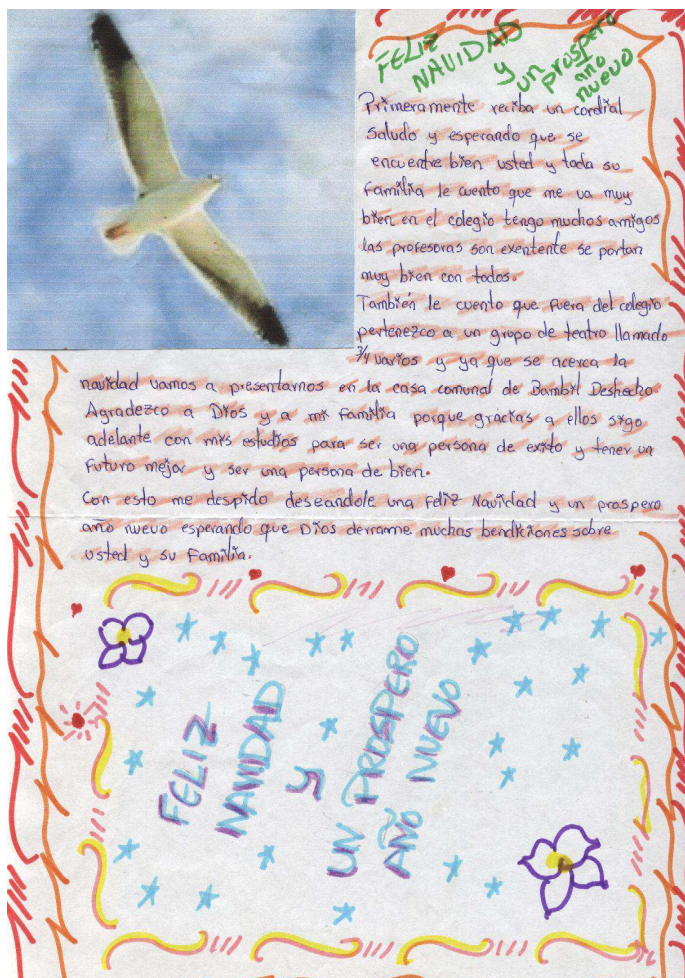 FELIZ
NAVIDAD
y
un prospero
año
nuevo
Primeramente reciba un cordial
saludo y esperando que se
encuentre bien usted y toda su
familia le cuento que me va muy
bien en el colegio tengo muchos amigos
las profesoras son exentente se portan
muy bien con todos.
También le cuento que fuera del colegio
pertenezco a un grupo de teatro llamado
3/4 varios y ya que se acerca la
navidad vamos a presentarnos en la casa comunal de Bambil Deshecho
Agradezco a Dios y a mi familia porque gracias a ellos sigo
adelante con mis estudios para ser una persona de exito y tener un
futuro mejor y ser una persona de bien.
Con esto me despido deseandole una Feliz Navidad y un prospero
año nuevo esperando que Dios derrame muchas bendiciones sobre
usted y su Familia.
FELIZ
NAVIDAD
y
UN PROSPERO
AÑO NUEVO